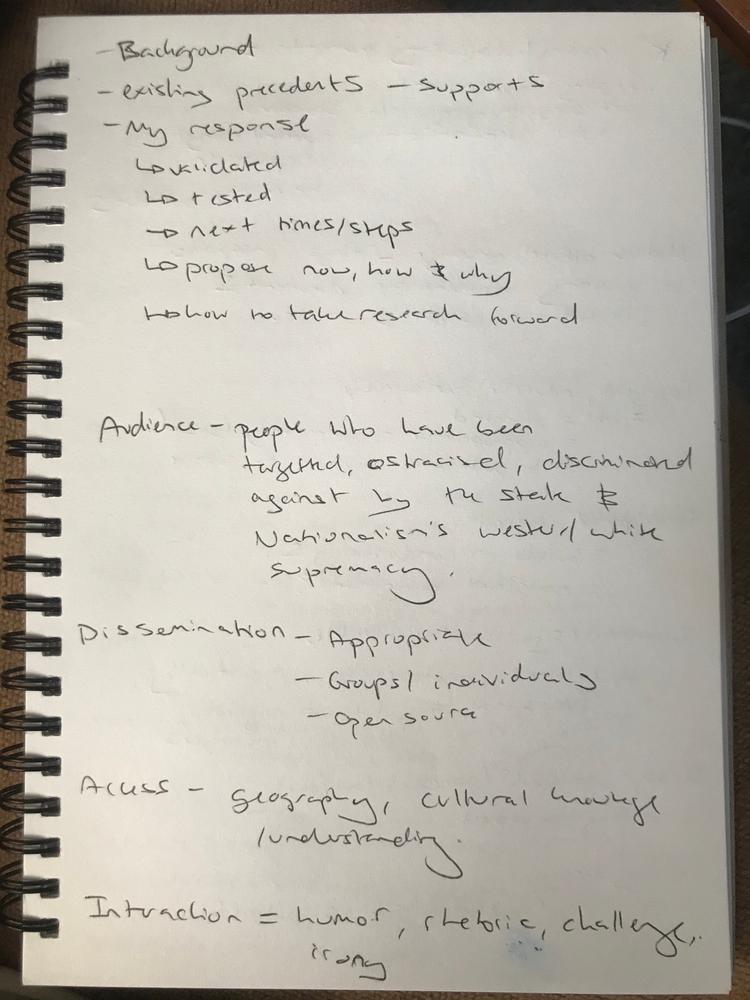 - Background
- existing precedents - supports
- My response
↳ validated
↳ tested
→ next times/steps
↳ propose now, how & why
↳ how to take research forward
Audience - people who have been
targetted, ostracised, discriminated
against by the state &
Nationalism's western/white
supremacy.
Dissemination - Appropriate
- Groups/individuals
- Open source
Access - geography, cultural knowledge
/understanding.
Interaction = humor, rhetoric, challenge,
irony